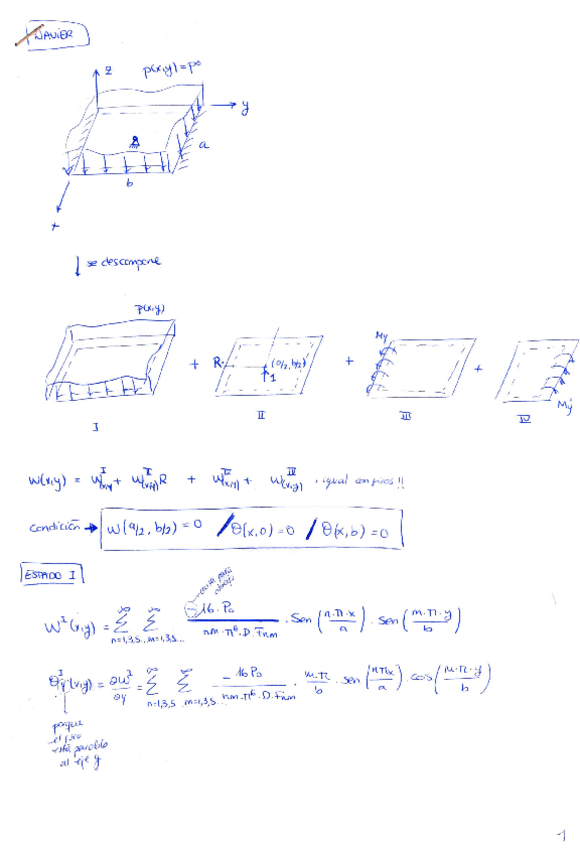 NAVIER
z
p(x,y)=p⁰
y
a
b
x
se descompone
p(x,y)
+ R (a/2, b/2) 1 + My + My
I II III IV
w(x,y) = w^I(x,y) + w^II(x,y) R + w^III(x,y) + w^IV(x,y)
condición → w(a/2, b/2) = 0 / θ(x,0) = 0 / θ(x,b) = 0
ESTADO I
w^I(x,y) = Σ^∞ n=1,3,5.. Σ^∞ m=1,3,5... −16·P₀ / n·m·π⁶·D·Fnm · sen (n·π·x / a) · sen (m·π·y / b)
θ^I y(x,y) = ∂w^I / ∂y = Σ^∞ n=1,3,5 Σ^∞ m=1,3,5... −16P₀ / n·m·π⁶·D·Fnm · m·π / b · sen (nπx / a) · cos (m·π·y / b)
porque
el giro
está paralelo
al eje y
1